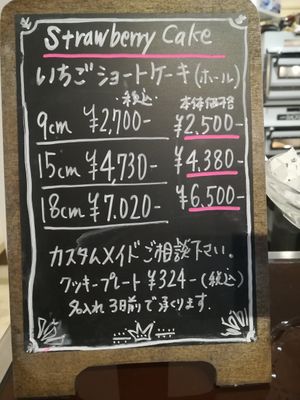 Strawberry Cake
いちごショートケーキ(ホール)
税込 本体価格
9cm ¥2,700- ¥2,500-
15cm ¥4,730- ¥4,380-
18cm ¥7,020- ¥6,500-
カスタムメイドご相談下さい。
クッキープレート ¥324-(税込)
名入れ 3日前で承ります。